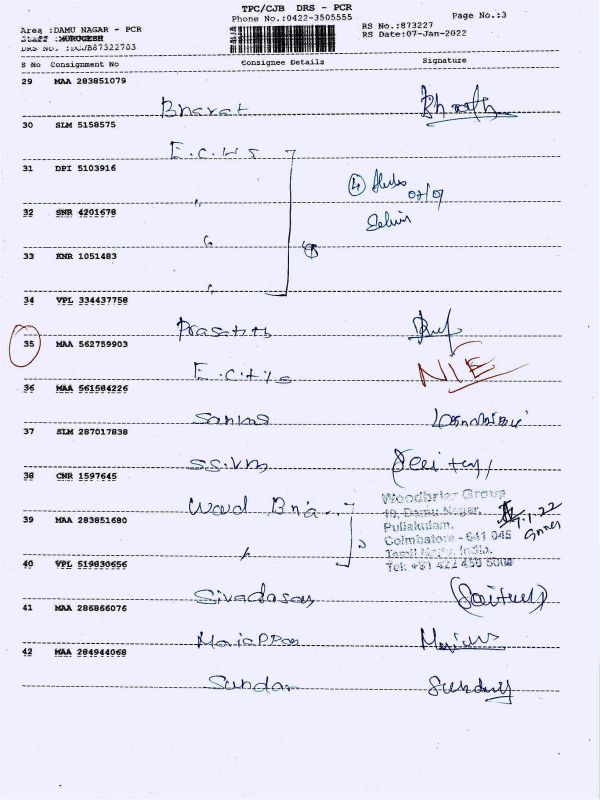 TPC/CJB DRS - PCR
Phone No.:0422-3505555
Page No.:3
Area :DAMU NAGAR - PCR
RS No.:873227
Staff :MURUGESH
RS Date:07-Jan-2022
DRS No. :DCJB87322703
S No Consignment No Consignee Details Signature
29 MAA 283851079
Bharat Bharath
30 SLM 5158575
E.C.H.S
31 DPI 5103916
"
32 SNR 4201678
"
33 KNR 1051483
"
34 VPL 334437758
Prasanth
35 MAA 562759903
NIE
36 MAA 561584226
37 SLM 287017838
S.S.Vm
38 CNR 1597645
Wood Bria..
Woodbriar Group
19, Damu Nagar,
Puliakulam,
Coimbatore - 641 045
Tamil Nadu, India.
Tel: +91 422 436 5000
39 MAA 283851680
"
40 VPL 519830656
Sivadasan
41 MAA 286866076
Mariappan
42 MAA 284944068
Sundar